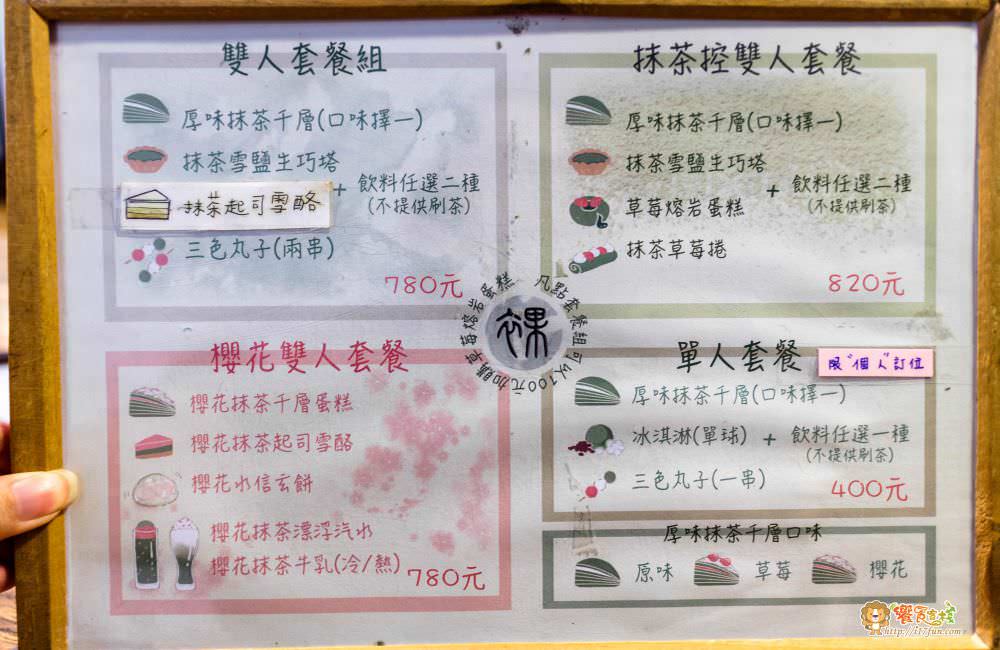 雙人套餐組
厚味抹茶千層(口味擇一)
抹茶雪鹽生巧塔
抹茶起司雪酪
三色丸子(兩串)
+ 飲料任選二種
(不提供刷茶)
780元
抹茶控雙人套餐
厚味抹茶千層(口味擇一)
抹茶雪鹽生巧塔
草莓熔岩蛋糕
抹茶草莓捲
+ 飲料任選二種
(不提供刷茶)
820元
凡點套餐組可以100元加購草莓熔岩蛋糕
櫻花雙人套餐
櫻花抹茶千層蛋糕
櫻花抹茶起司雪酪
櫻花水信玄餅
櫻花抹茶漂浮汽水
櫻花抹茶牛乳(冷/熱)
780元
單人套餐
限"個人"訂位
厚味抹茶千層(口味擇一)
冰淇淋(單球)
三色丸子(一串)
+ 飲料任選一種
(不提供刷茶)
400元
厚味抹茶千層口味
原味
草莓
櫻花
http://i17fun.com/